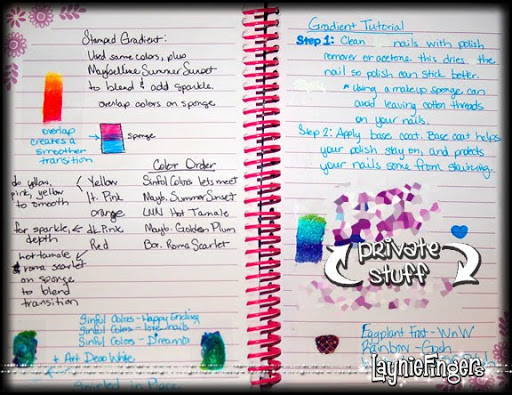 Stamped Gradient:
Used same colors, plus
Maybelline Summer Sunset
to blend & add sparkle.
overlap colors on sponge
overlap
creates a
smoother
transition
sponge
Color Order
do yellow,
pink, yellow
to smooth
Yellow Sinful Colors Lets meet
lt. Pink Mayb. Summer Sunset
orange LNN Hot Tamale
for sparkle,
depth
dk. Pink Mayb. Golden Plum
Red Bor. Roma Scarlet
hot tamale
& roma scarlet
on sponge
to blend
transition
Sinful Colors - Happy Ending
Sinful Colors - Love nails
Sinful Colors - Dream on
+ Art Deco White
in Place
Gradient Tutorial
Step 1: Clean nails with polish
remover or acetone. this dries the
nail so polish can stick better.
* Using a makeup sponge can
avoid leaving cotton threads
on your nails.
Step 2: Apply base coat. Base coat helps
your polish stay on, and protects
your nails some from staining.
private
stuff
Eggplant Frost - WnW
Rainbow -
LaynieFingers